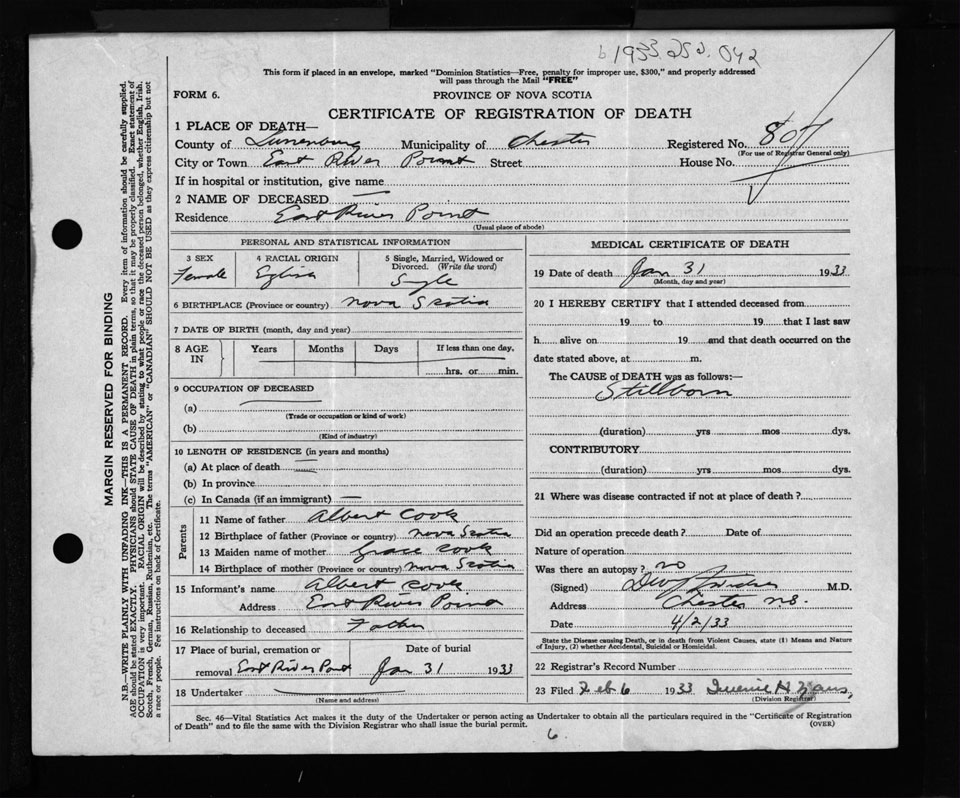 b 1933 250. 042
This form if placed in an envelope, marked "Dominion Statistics—Free, penalty for improper use, $300," and properly addressed
will pass through the Mail "FREE"
FORM 6. PROVINCE OF NOVA SCOTIA
CERTIFICATE OF REGISTRATION OF DEATH
1 PLACE OF DEATH—
County of Lunenburg Municipality of Chester Registered No. 807
(For use of Registrar General only)
City or Town East River Point Street House No.
If in hospital or institution, give name
2 NAME OF DECEASED —
Residence East River Point
(Usual place of abode)
PERSONAL AND STATISTICAL INFORMATION
3 SEX 4 RACIAL ORIGIN 5 Single, Married, Widowed or
Divorced. (Write the word)
Female Single
6 BIRTHPLACE (Province or country) Nova Scotia
7 DATE OF BIRTH (month, day and year)
8 AGE IN Years Months Days If less than one day,
hrs. or min.
9 OCCUPATION OF DECEASED
(a)
(Trade or occupation or kind of work)
(b)
(Kind of industry)
10 LENGTH OF RESIDENCE (in years and months)
(a) At place of death
(b) In province
(c) In Canada (if an immigrant) —
Parents
11 Name of father Albert Cook
12 Birthplace of father (Province or country) Nova Scotia
13 Maiden name of mother Grace Cook
14 Birthplace of mother (Province or country) Nova Scotia
15 Informant's name Albert Cook
Address East River Point
16 Relationship to deceased Father
17 Place of burial, cremation or Date of burial
removal East River Point Jan 31 1933
18 Undertaker
(Name and address)
MEDICAL CERTIFICATE OF DEATH
19 Date of death Jan 31 1933
(Month, day and year)
20 I HEREBY CERTIFY that I attended deceased from
19 to 19 that I last saw
h alive on 19 and that death occurred on the
date stated above, at m.
The CAUSE of DEATH was as follows:—
Stillborn
(duration) yrs mos dys.
CONTRIBUTORY
(duration) yrs mos dys.
21 Where was disease contracted if not at place of death?
Did an operation precede death? Date of
Nature of operation
Was there an autopsy? no
(Signed) M.D.
Address Chester N.S.
Date 4/2/33
State the Disease causing Death, or in death from Violent Causes, state (1) Means and Nature
of Injury, (2) whether Accidental, Suicidal or Homicidal.
22 Registrar's Record Number
23 Filed Feb 6 1933
(Division Registrar)
Sec. 46—Vital Statistics Act makes it the duty of the Undertaker or person acting as Undertaker to obtain all the particulars required in the "Certificate of Registration
of Death" and to file the same with the Division Registrar who shall issue the burial permit. (OVER)
6.
MARGIN RESERVED FOR BINDING
N.B.—WRITE PLAINLY WITH UNFADING INK—THIS IS A PERMANENT RECORD. Every item of information should be carefully supplied.
AGE should be stated EXACTLY. PHYSICIANS should STATE CAUSE OF DEATH in plain terms, so that it may be properly classified. Exact statement of
OCCUPATION is very important. RACIAL ORIGIN will be described by stating to what people or race the deceased person belonged, whether English, Irish,
Scotch, French, German, Russian, Ruthenian, etc. The terms "AMERICAN" or "CANADIAN" SHOULD NOT BE USED as they express citizenship but not
a race or people. Fee instructions on back of Certificate.